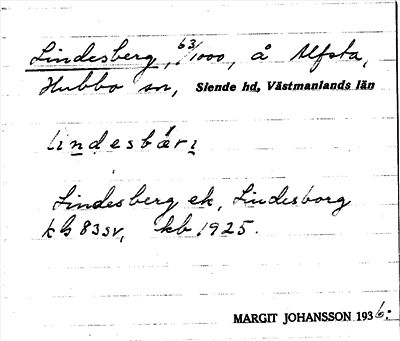 Lindesberg, 63/1000, å Ulfsta,
Hubbo sn, Siende hd, Västmanlands län
lindesbæri
Lindesberg ek, Lindesborg
kb 83 sv, kb 1925.
MARGIT JOHANSSON 1936: